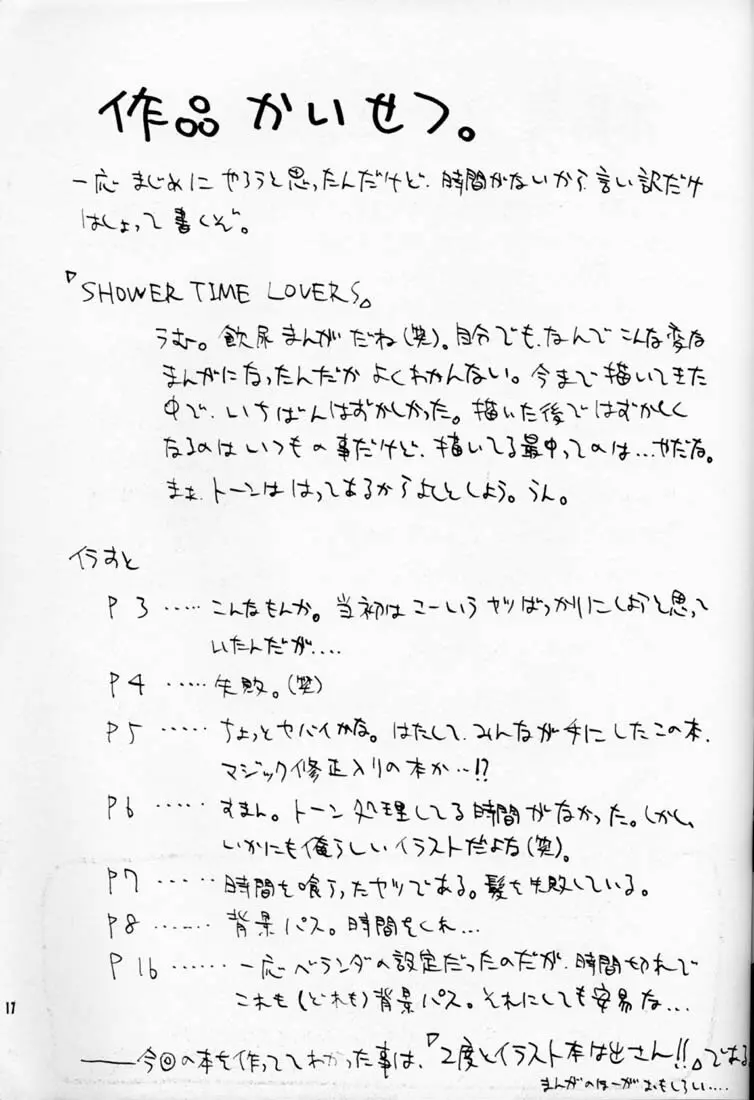 作品かいせつ。
一応まじめにやろうと思ったんだけど、時間がないから言い訳だけ
はしょって書くぞ。
『SHOWER TIME LOVERS』
うむ。飲尿まんがだね(笑)。自分でも、なんでこんな変な
まんがになったんだかよくわかんない。今まで描いてきた
中で、いちばんはずかしかった。描いた後ではずかしく
なるのはいつもの事だけど、描いてる最中ってのは…やだな。
まぁ、トーンははってあるからよしとしよう。うん。
イラすと
P3 ‥‥‥ こんなもんか。当初はこーいうヤツばっかりにしようと思って
いたんだが‥‥
P4 ‥‥‥ 失敗。(笑)
P5 ‥‥‥ ちょっとヤバイかな。はたして、みんなが手にしたこの本、
マジック修正入りの本か…!?
P6 ‥‥‥ すまん。トーン処理してる時間がなかった。しかし、
いかにも俺らしいイラストだよな(笑)。
P7 ‥‥‥ 時間を喰らったヤツである。髪を失敗している。
P8 ‥‥‥ 背景パス。時間をくれ…
P16 ‥‥‥ 一応ベランダの設定だったのだが、時間切れで
これも(どれも)背景パス。それにしても安易な‥‥
――今回の本を作っててわかった事は、『2度とイラスト本は出さん!!』である
まんがのほーがおもしろい‥‥
17